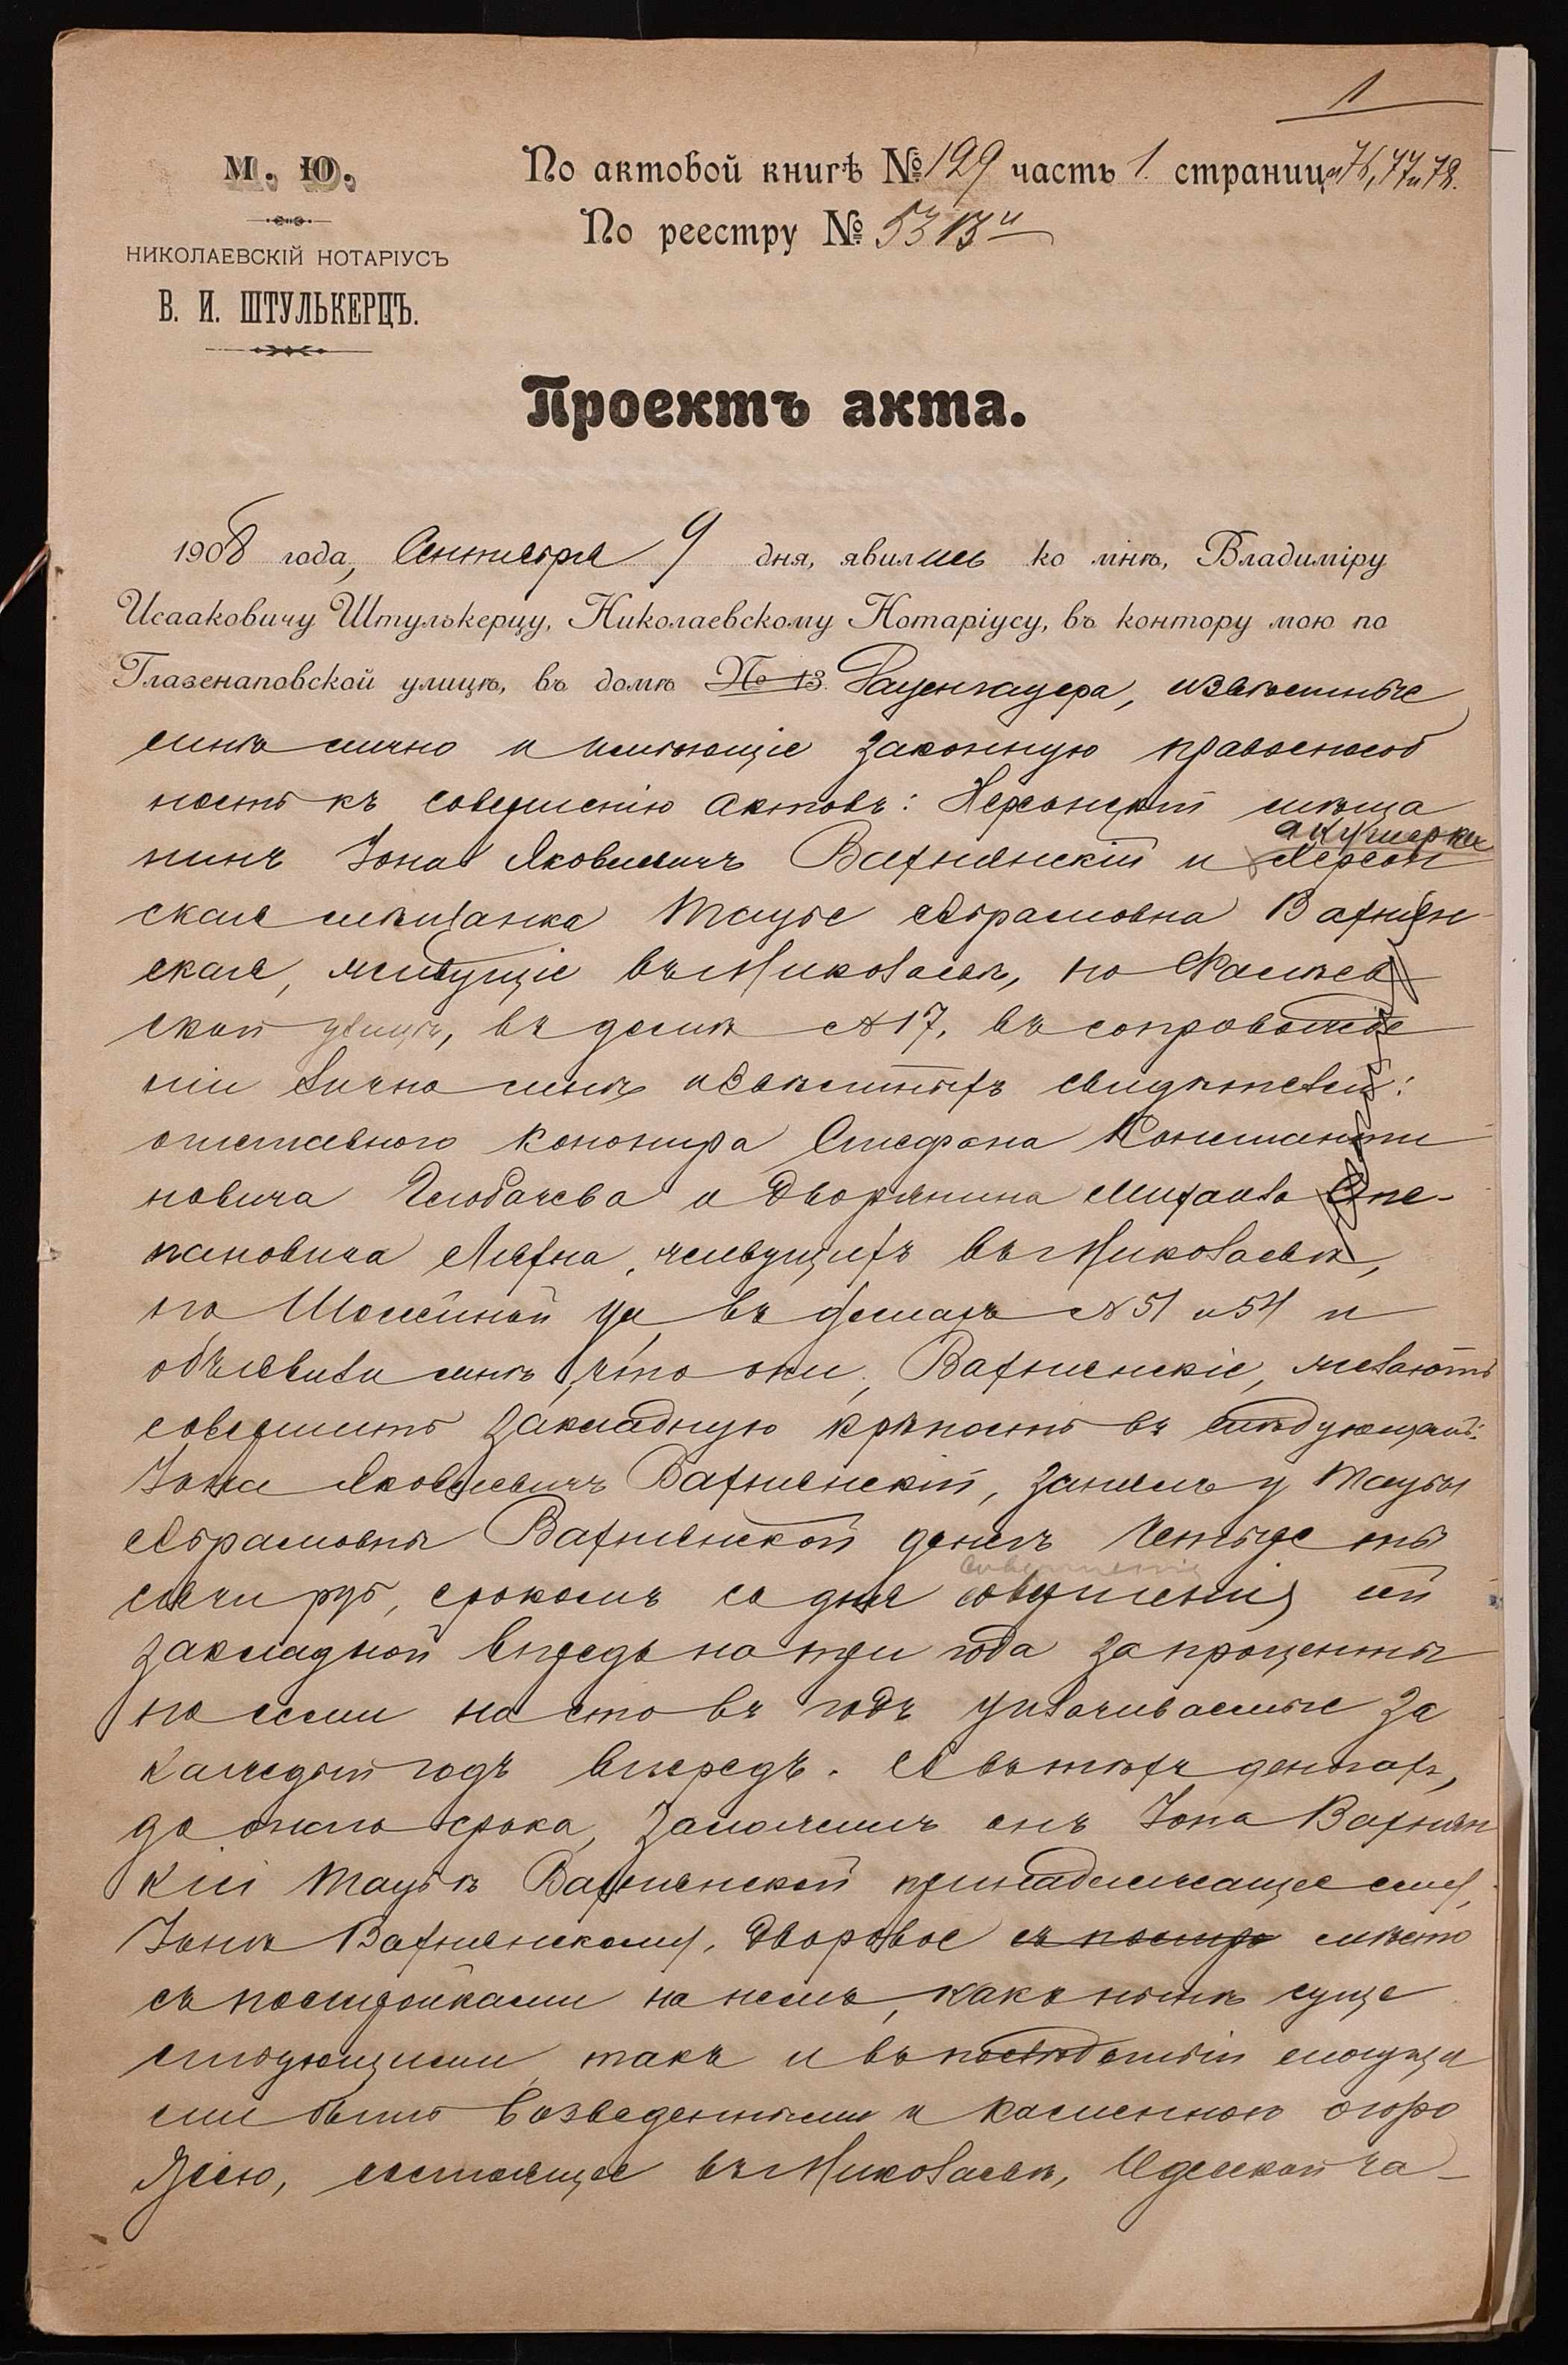 1
М. Ю.
НИКОЛАЕВСКІЙ НОТАРІУСЪ
В. И. ШТУЛЬКЕРЦЪ.
По актовой книгѣ № 129 часть 1. страницы 76, 77 и 78.
По реестру №
Проектъ акта.
1908 года, Сентября 9 дня, явились ко мнѣ, Владиміру
Исааковичу Штулькерцу, Николаевскому Нотаріусу, въ контору мою по
Глазенаповской улицѣ, въ домѣ № 13. Раценгауера, извѣстные
мнѣ лично и имѣющіе законную правоспособ
ность къ совершенію актовъ: Херсонскій мѣща
нинъ Іона Яковлевичъ Вахнянскій и
акушерка
Херсон
ская мѣщанка Тауба Абрамовна Вахнян
ская, живущіе въ Николаевѣ, по Фалѣев
ской улицѣ, въ домѣ № 17, въ сопровожде
ніи лично мнѣ извѣстныхъ свидѣтелей:
отставного канонира Стефана Константи
новича и дворянина Михаила Сте-
пановича живущихъ въ Николаевѣ,
по Шоссейной ул въ домахъ № 51 и 54 и
объявили мнѣ что они, Вахнянскіе, желаютъ
совершить закладную крѣпость въ слѣдующемъ:
Іона Яковлевичъ Вахнянскій, занялъ у Таубы
Абрамовны Вахнянской денегъ четыре ты
сячи руб, срокомъ со дня совершенія сей
совершенія
закладной впредь на три года за проценты
по семи на сто въ годъ уплачиваемые за
каждый годъ впередъ. А въ тѣхъ деньгахъ,
до онаго срока, заложилъ онъ Іона Вахнян
кій Таубѣ Вахнянской принадлежащее ему,
Іонѣ Вахнянскому, дворовое съ постро мѣсто
съ постройками на немъ, какъ нынѣ суще
ствующими такъ и въ послѣдствіи могущи
ми быть возведенными и каменною огоро
жею, состоящее въ Николаевѣ, Одесской ча-